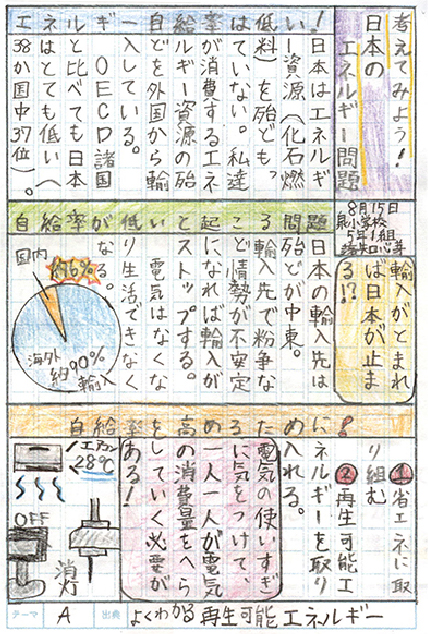 考えてみよう!
日本の
エネルギー問題
エネルギー自給率は低い!
日本はエネルギ
ー資源(化石燃
料)を殆どもっ
ていない。私達
が消費するエネ
ルギー資源の殆
どを外国から輸
入している。
OECD諸国
と比べても日本
はとても低い(
38か国中37位)。
8月15日
泉小学校
5年1組
輸入がとまれ
ば日本が止ま
る!?
自給率が低いと起こる問題
日本の輸入先は
殆どが中東。
輸入先で紛争な
ど情勢が不安定
になれば輸入が
ストップする。
電気はなくな
り生活できなく
なる。
国内
海外
約90%
輸入
自給率を高めるために
❶省エネに取
り組む
❷再生可能エ
ネルギーを取り
入れる。
電気の使いすぎ
に気をつけて、
一人一人が電気
の消費量をへら
していく必要が
ある!
エアコン
28℃
OFF
消灯
テーマ A
出典 よくわかる再生可能エネルギー